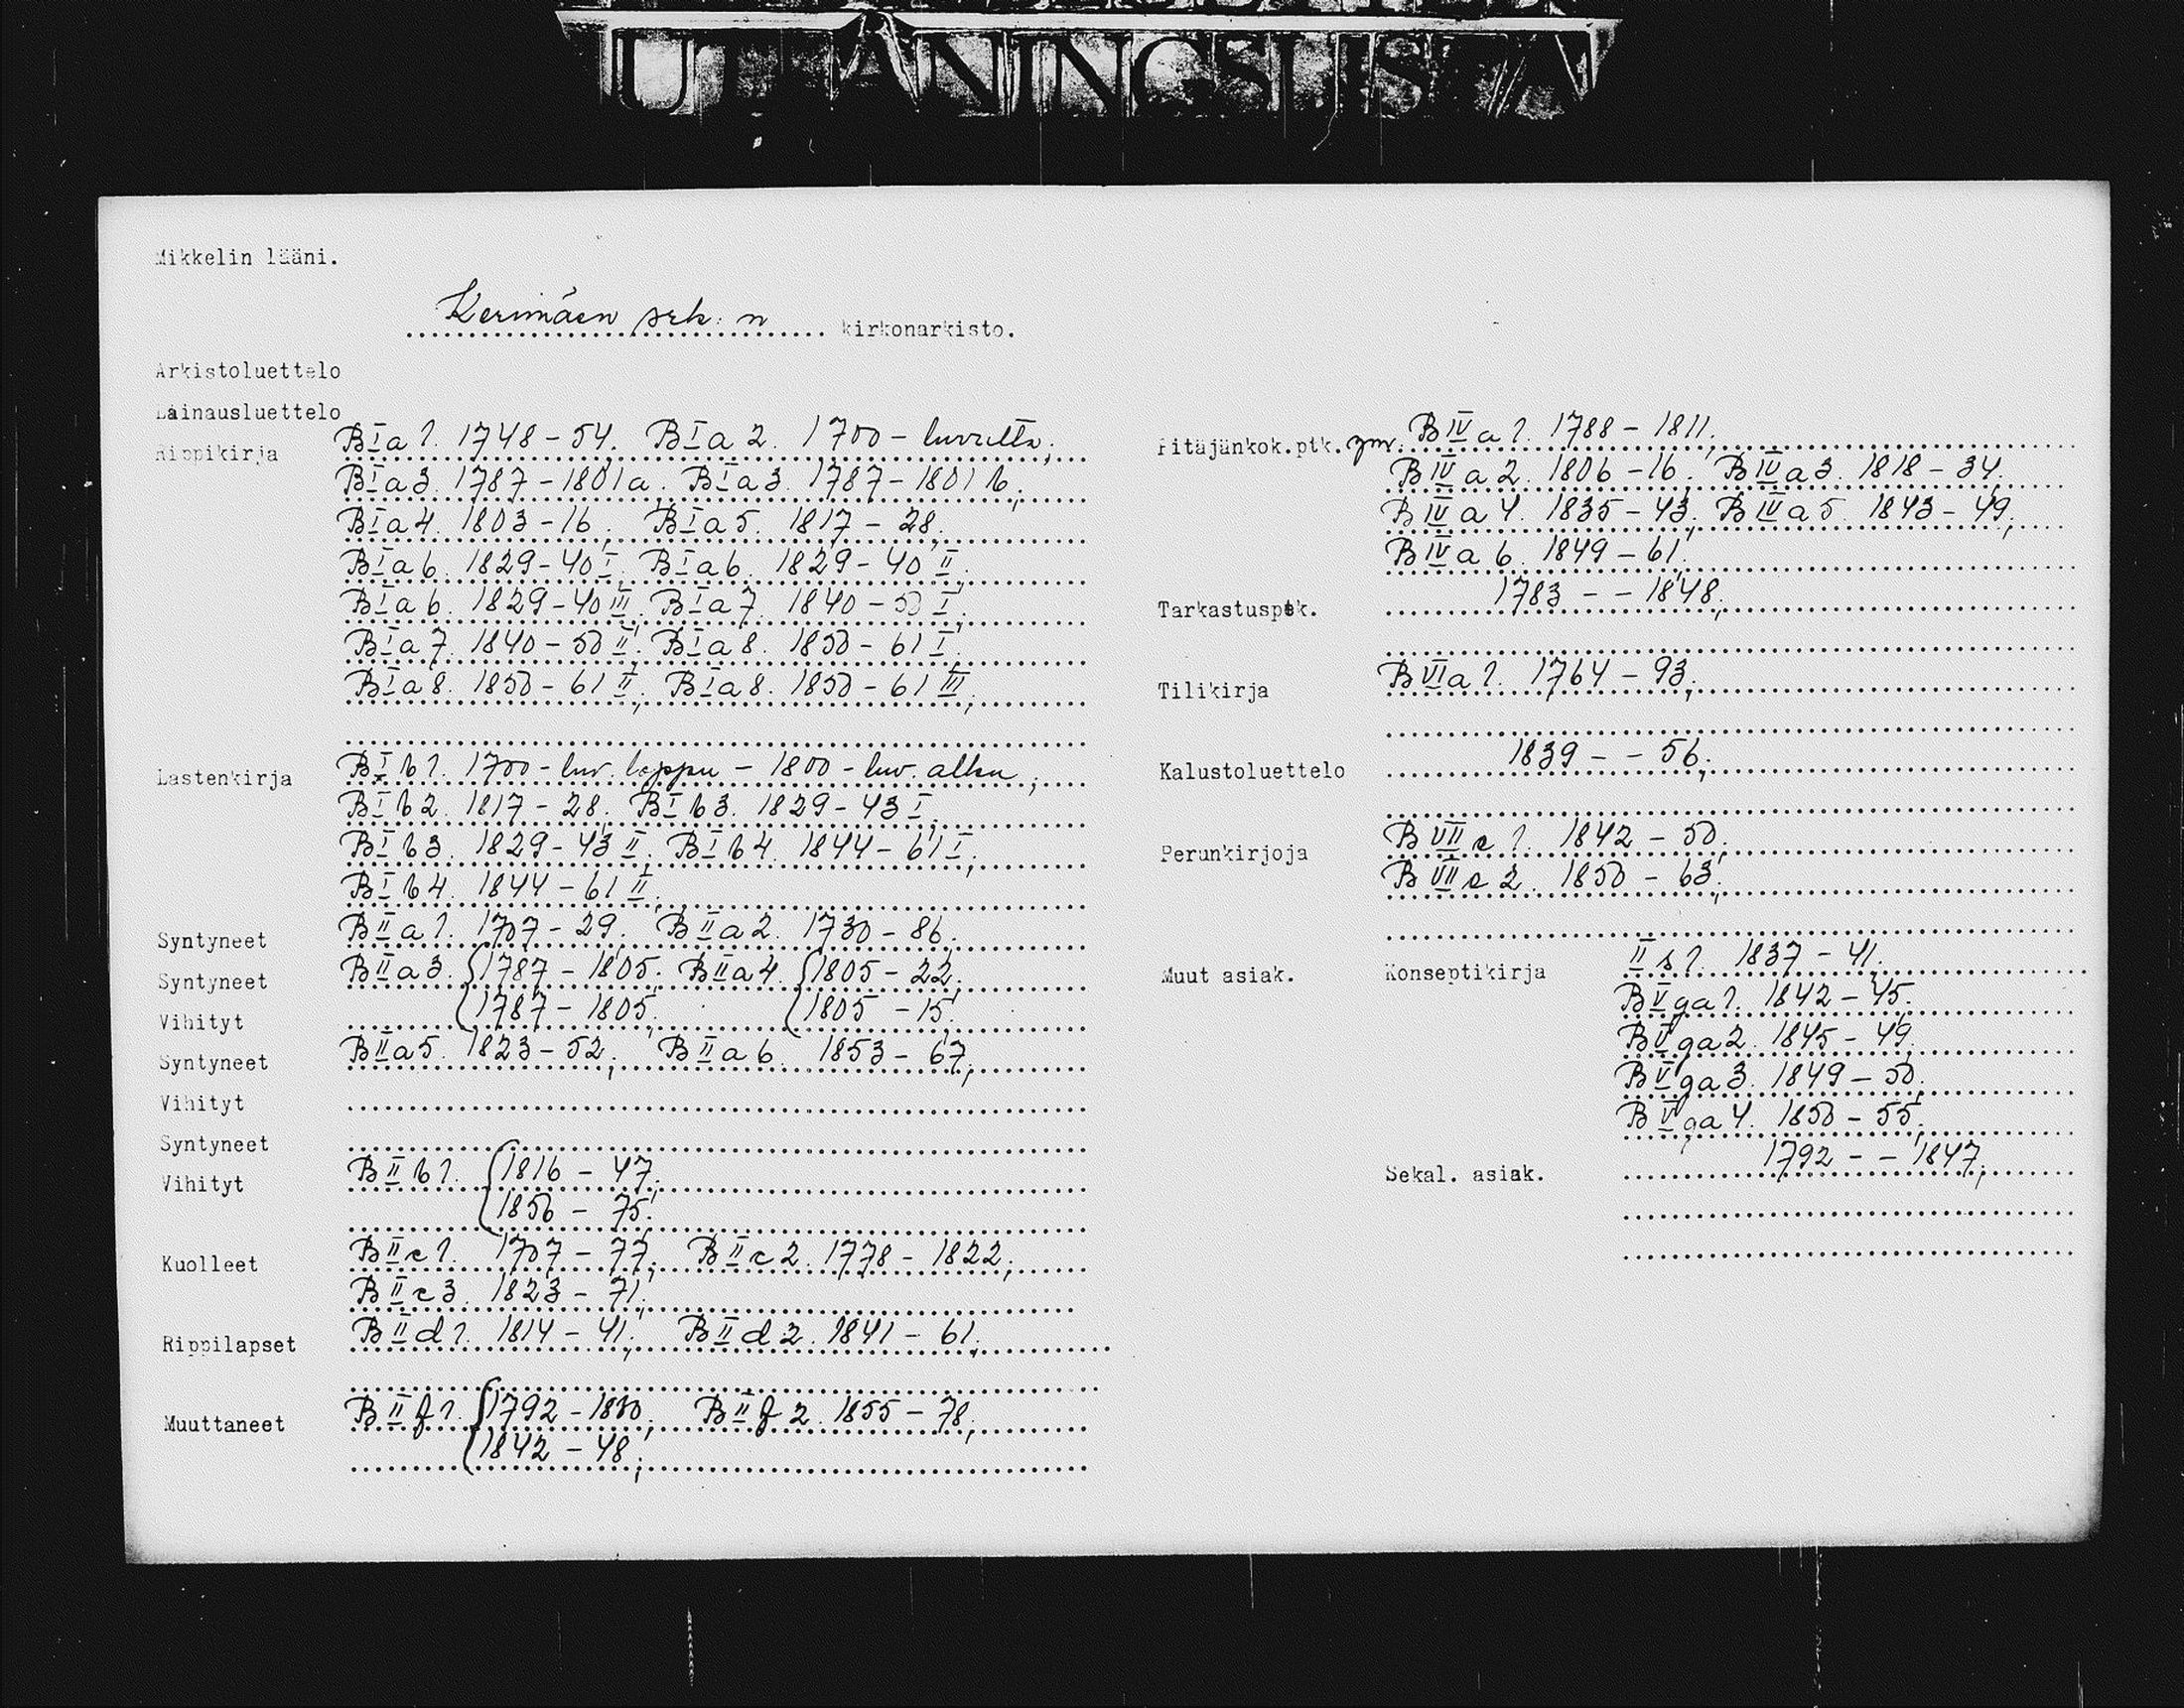 UTLÅNINGSLISTA
Mikkelin lääni.
Kerimäen srk:n kirkonarkisto.
Arkistoluettelo
Lainausluettelo
Rippikirja BIa1. 1748-54. BIa2. 1700-luvulta;
BIa3. 1787-1801a. BIa3. 1787-1801b;
BIa4. 1803-16; BIa5. 1817-28;
BIa6. 1829-40 I; BIa6. 1829-40 II;
BIa6. 1829-40 III; BIa7. 1840-50 I;
BIa7. 1840-50 II; BIa8. 1850-61 I;
BIa8. 1850-61 II; BIa8. 1850-61 III;
Lastenkirja BIb1. 1700-luv. loppu - 1800-luv. alku;
BIb2. 1817-28. BIb3. 1829-43 I;
BIb3. 1829-43 II; BIb4. 1844-61 I;
BIb4. 1844-61 II;
Syntyneet BIIa1. 1707-29. BIIa2. 1730-86.
Syntyneet BIIa3. 1787-1805. BIIa4. 1805-22;
Vihityt 1787-1805; 1805-15;
Syntyneet BIIa5. 1823-52; BIIa6. 1853-67;
Vihityt
Syntyneet
Vihityt BIIb1. 1816-47;
1856-75;
Kuolleet BIIc1. 1707-77; BIIc2. 1778-1822;
BIIc3. 1823-71;
Rippilapset BIId1. 1814-41; BIId2. 1841-61;
Muuttaneet BIIf1. 1792-1830; BIIf2. 1855-78;
1842-48;
Pitäjänkok.ptk. ym. BIVa1. 1788-1811;
BIVa2. 1806-16. BIVa3. 1818-34;
BIVa4. 1835-43; BIVa5. 1843-49;
BIVa6. 1849-61;
Tarkastusptk. 1783--1848;
Tilikirja BVIa1. 1764-93;
Kalustoluettelo 1839--56;
Perunkirjoja BVIIc1. 1842-50;
BVIIc2. 1850-63;
Muut asiak. Konseptikirja II s1. 1837-41.
BVga1. 1842-45.
BVga2. 1845-49.
BVga3. 1849-50.
BVga4. 1850-55;
Sekal. asiak. 1792--1847;